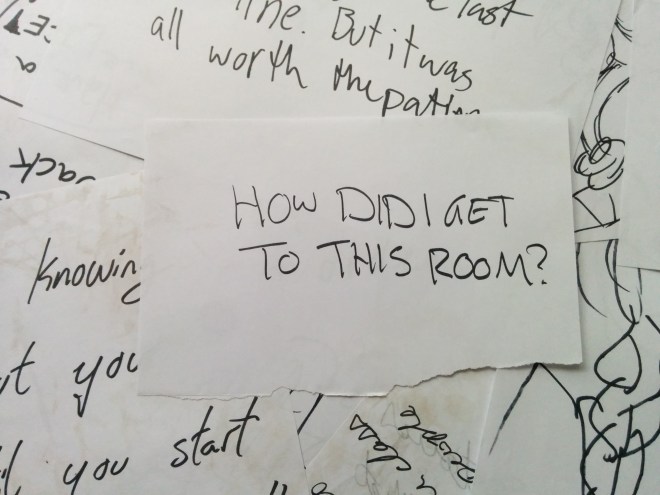 e last
line. But it was
all worth the
HOW DID I GET
TO THIS ROOM?
t you
you start
people
class